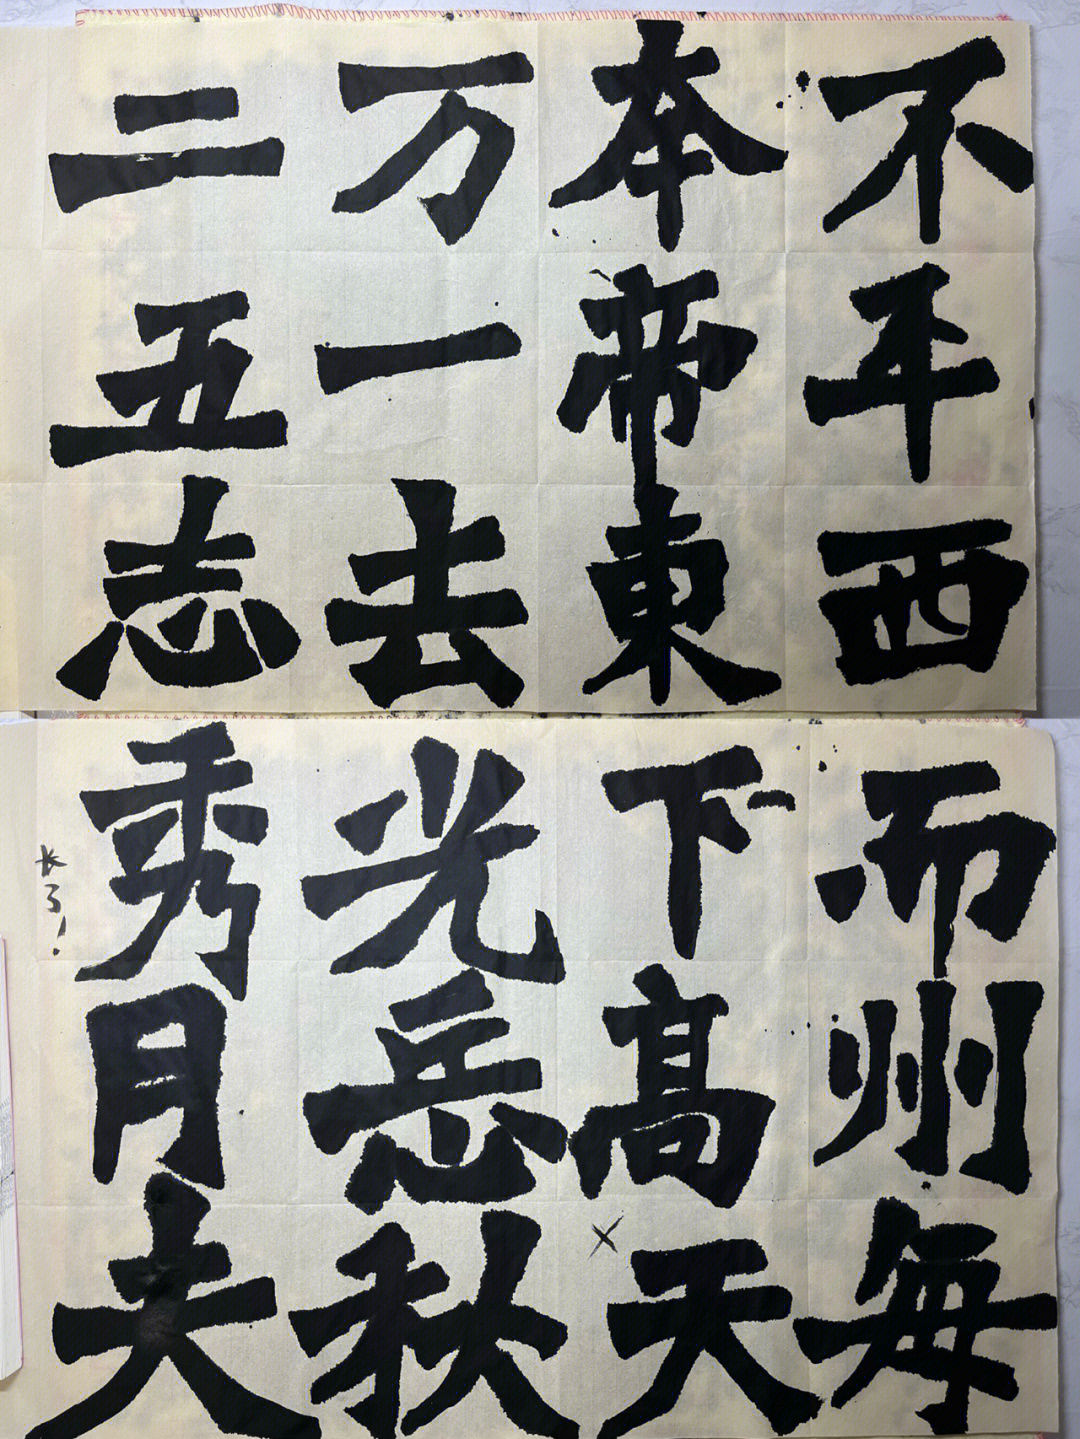 不年西
本帝東
万一去
二五志
而州每
下髙天
光秋
秀月夫
长了！